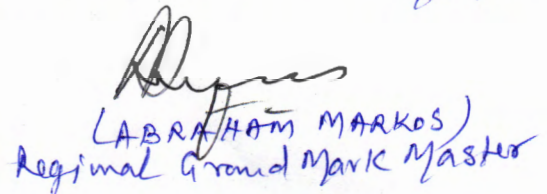 (ABRAHAM MARKOS)
Regional Grand Mark Master